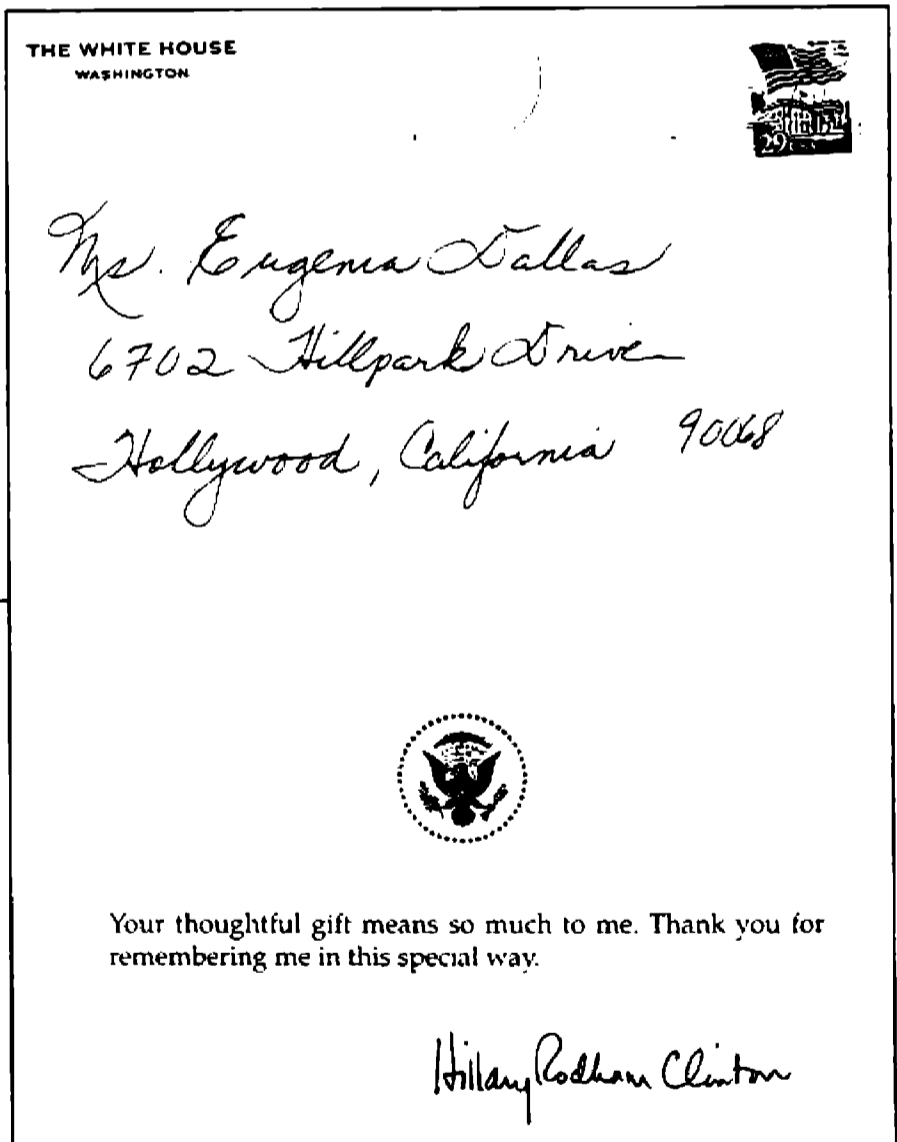 THE WHITE HOUSE
WASHINGTON
29
Ms. Eugenia Dallas
6702 Hillpark Drive
Hollywood, California 90068
Your thoughtful gift means so much to me. Thank you for
remembering me in this special way.
Hillary Rodham Clinton